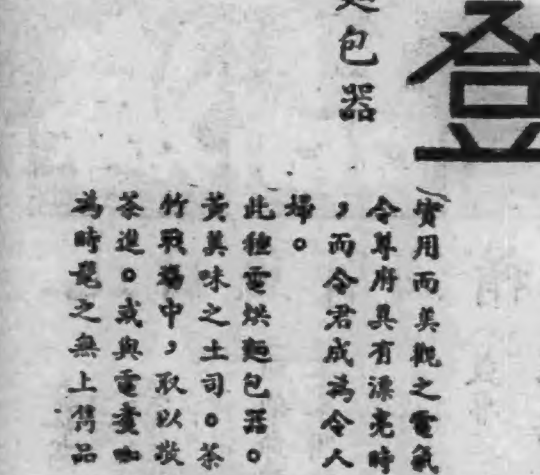 登
包器
實用而美觀之電氣
令尊府具有漂亮時
，而令君成為令人
婦。
此種電烘麵包器。
黃美味之土司。茶
竹戰場中，取以收
茶進。或與電壺咖
為時髦之無上隽品